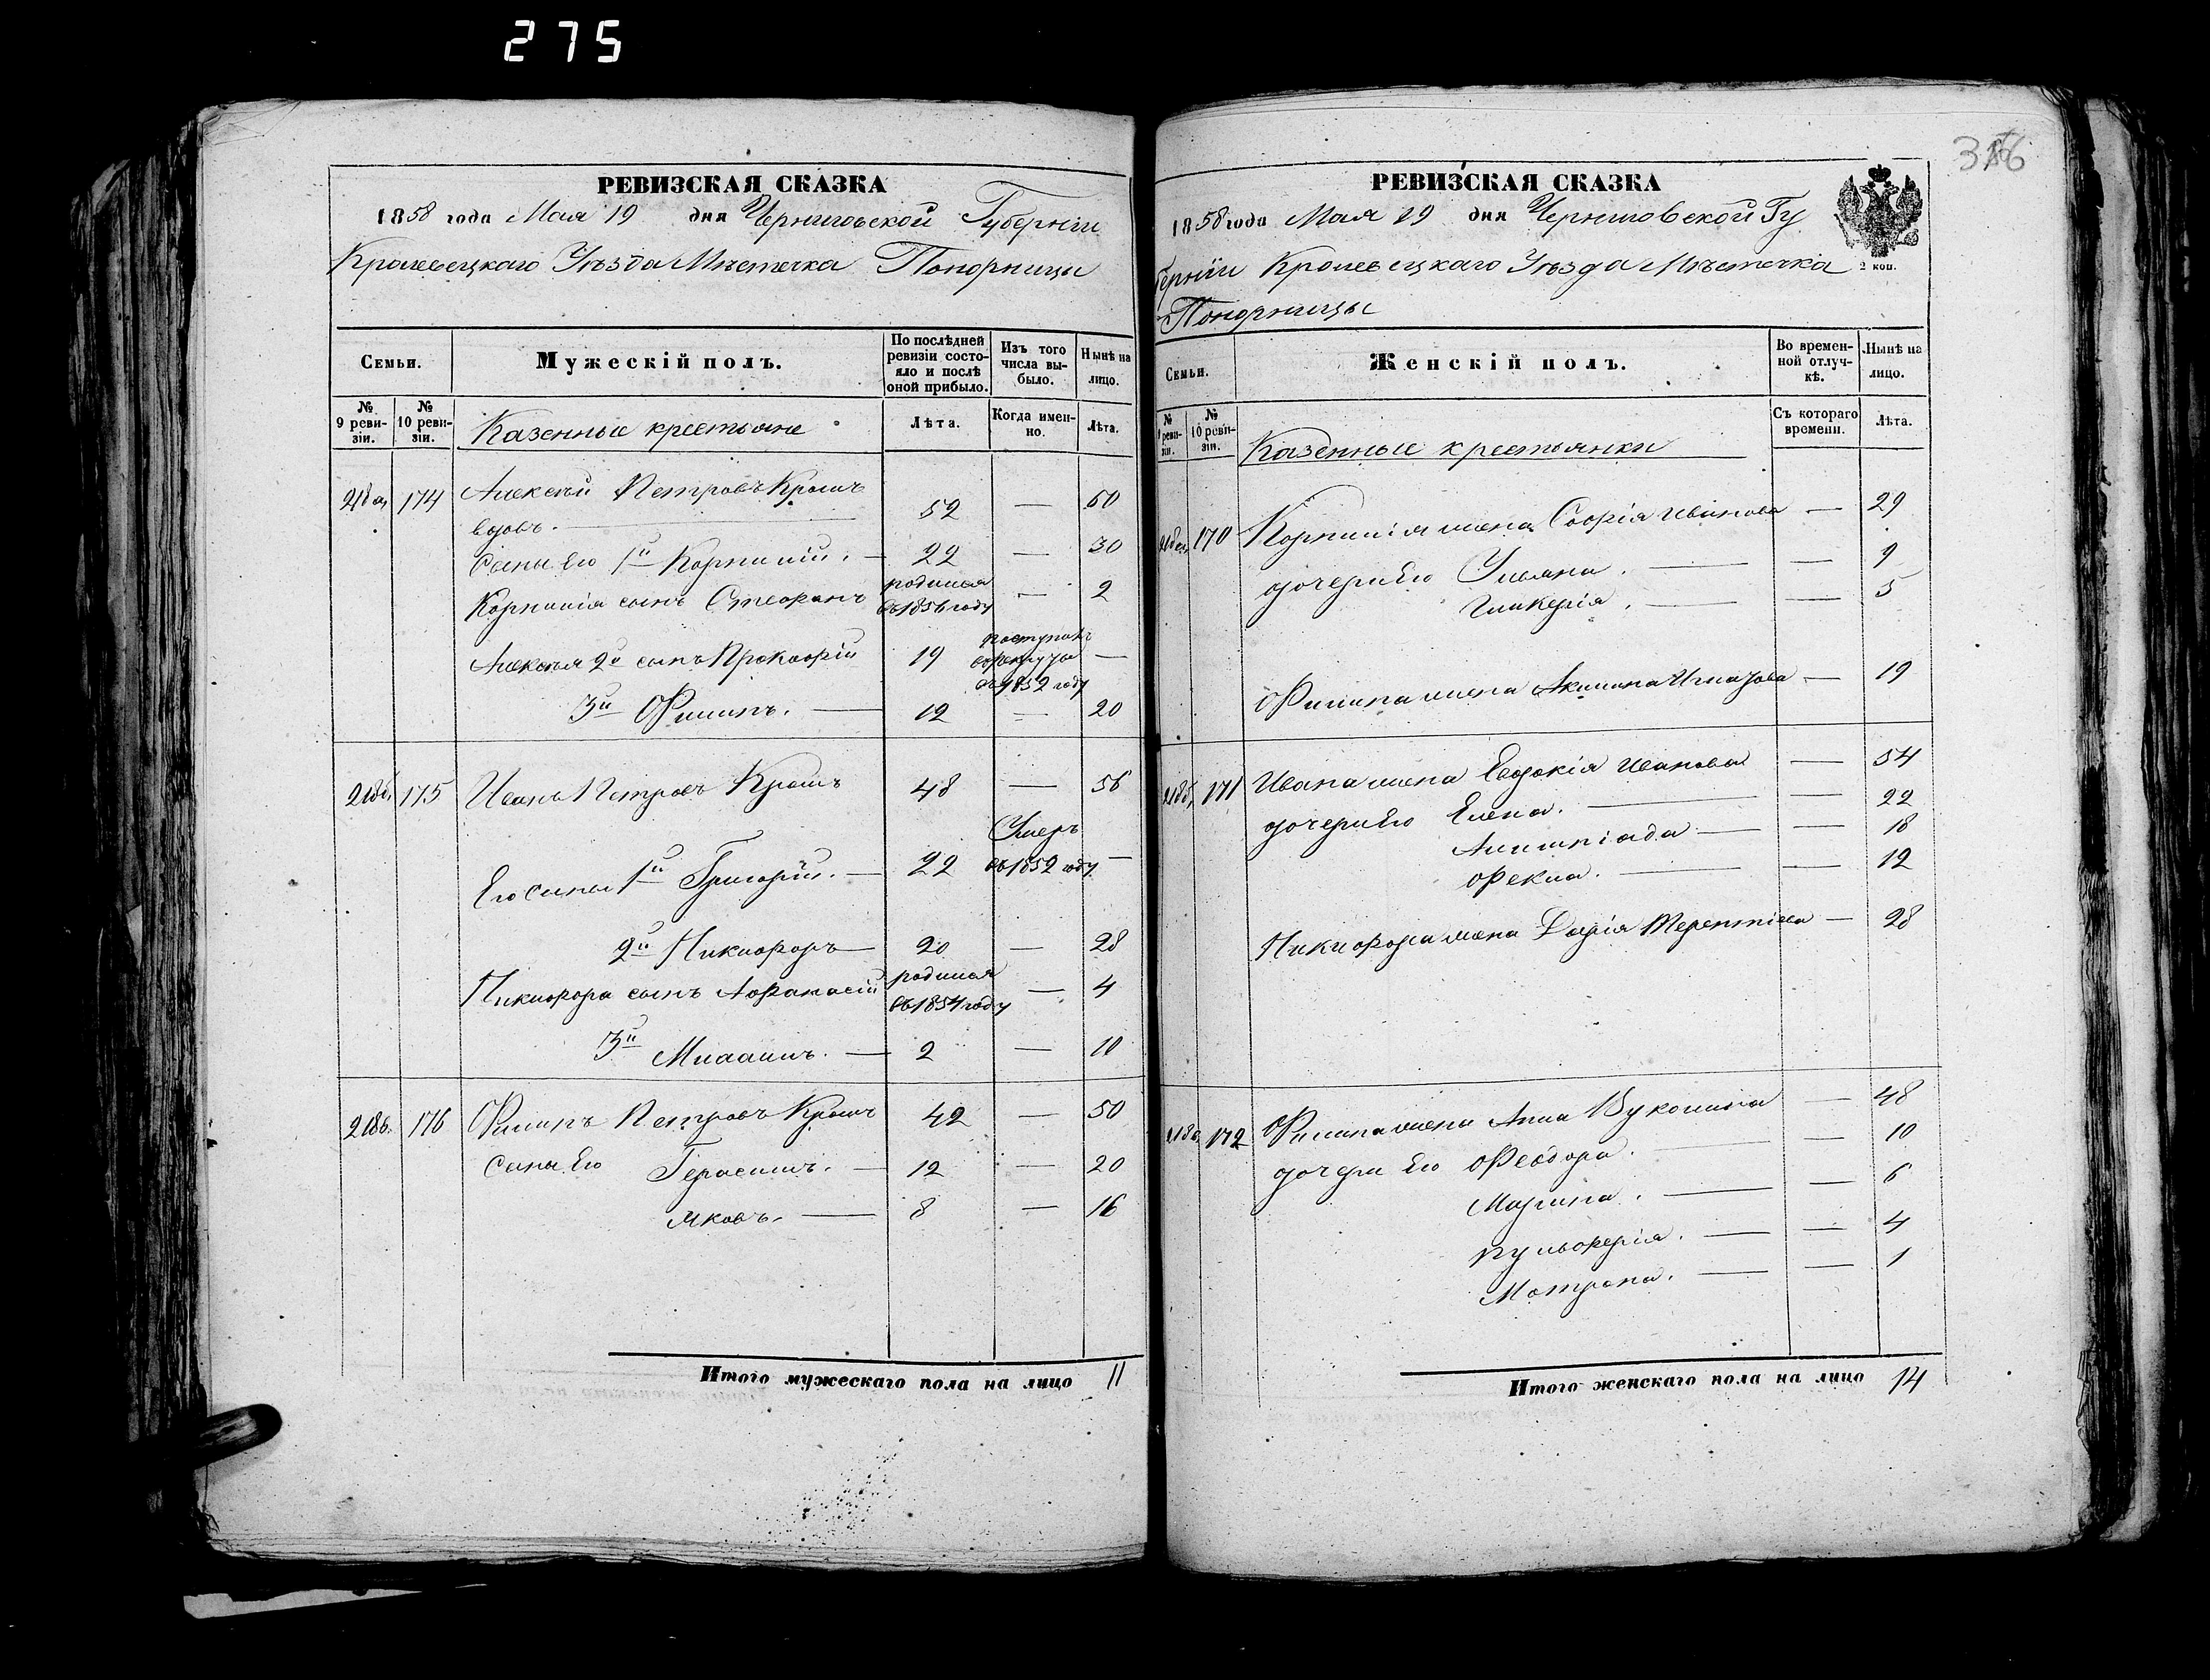 275
РЕВИЗСКАЯ СКАЗКА
1858 года Мая 19 дня Черниговской Губерніи
Кролевецкаго Уѣзда Мѣстечка Понорницы
Семьи.
Мужескій полъ.
По послѣдней ревизіи состояло и послѣ оной прибыло.
Изъ того числа выбыло.
Нынѣ на лицо.
№ 9 ревизіи.
№ 10 ревизіи.
Казенные крестьяне
Лѣта.
Когда именно.
Лѣта.
218а, 174 Алексѣй Петровъ
вдовъ. 52 — 60
Сыны Его 1й Корнилій. — 22 — 30
Корнилія сынъ Стефанъ родился въ 1856 году — 2
Алексѣя 2й сынъ Прокофій 19 поступилъ въ рекруты въ 1852 году —
3й Филипъ. — 12 — 20
218б, 175 Иванъ Петровъ 48 — 56
Его сыны 1й Григорій. — 22 Умеръ въ 1852 году —
2й Никифоръ — 20 — 28
Никифора сынъ Афанасій родился въ 1854 году — 4
3й — 2 — 10
218в. 176 Филипъ Петровъ 42 — 50
Сыны Его Герасимъ. — 12 — 20
Яковъ. — 8 — 16
Итого мужескаго пола на лицо 11
316
РЕВИЗСКАЯ СКАЗКА
1858 года Мая 19 дня Черниговской Гу
берніи Кролевецкаго Уѣзда Мѣстечка
Понорницы
2 коп.
Семьи.
Женскій полъ.
Во временной отлучкѣ.
Нынѣ на лицо.
№ 9 ревизіи.
№ 10 ревизіи.
Казенные крестьянки
Съ котораго времени.
Лѣта.
218а, 170 Корнилія жена Софія Иванова — 29
дочери Его Ульяна. — — 9
Гликерія. — — 5
Филипа жена Акилина Игнатова — 19
218б, 171 Ивана жена Евдокія Иванова — 54
дочери Его Елена. — — 22
Алимпіада — — 18
Фекла. — — 12
Никифора жена Дарія Терентіева — 28
218в, 172 Филипа жена Анна — 48
дочери Его Феодора. — — 10
Марина. — — 6
Пульхерія. — — 4
Матрона. — — 1
Итого женскаго пола на лицо 14